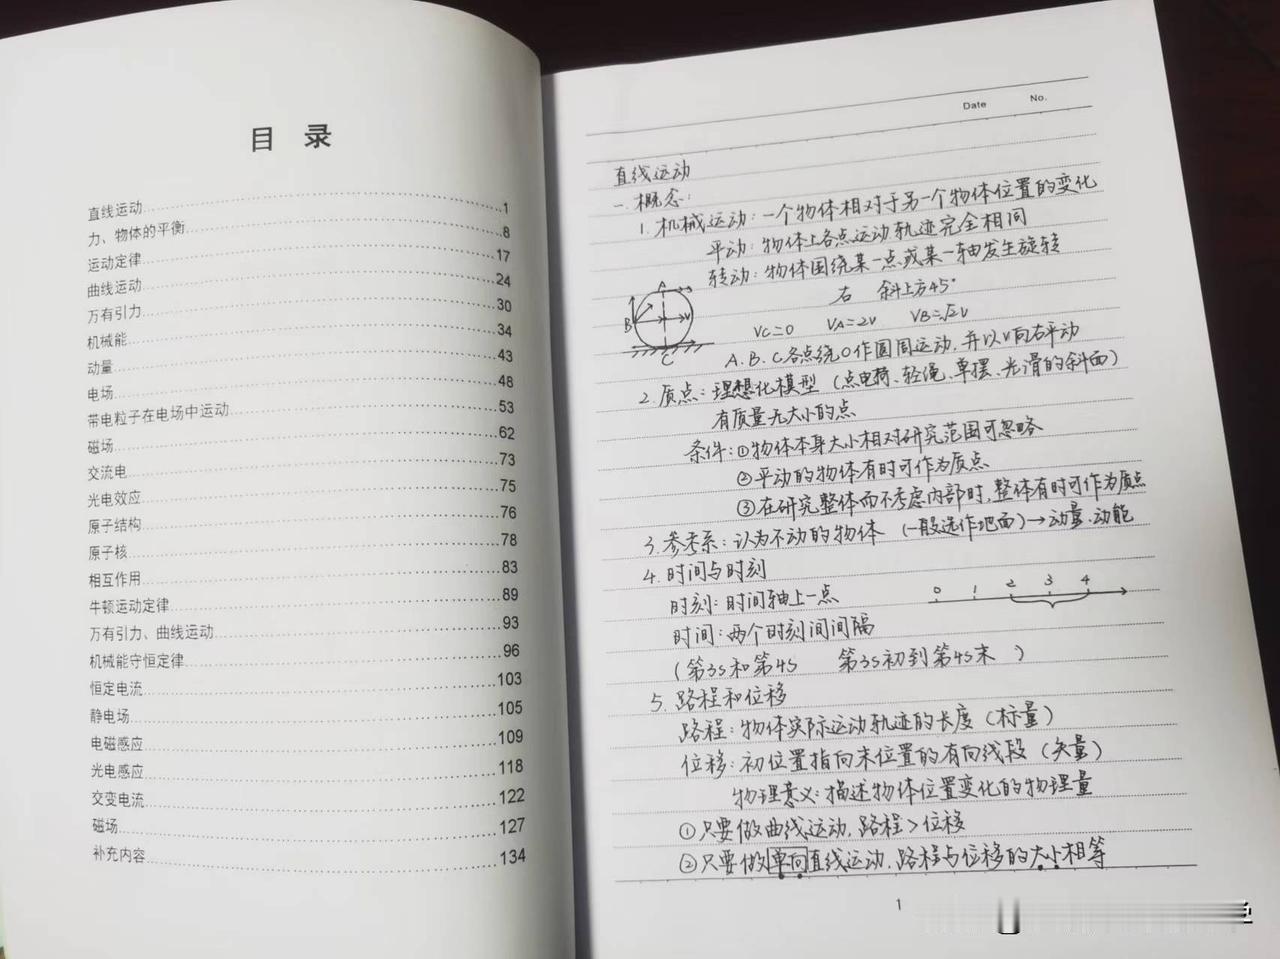 目 录
直线运动......1
力、物体的平衡......8
运动定律......17
曲线运动......24
万有引力......30
机械能......34
动量......43
电场......48
带电粒子在电场中运动......53
磁场......62
交流电......73
光电效应......75
原子结构......76
原子核......78
相互作用......83
牛顿运动定律......89
万有引力、曲线运动......93
机械能守恒定律......96
恒定电流......103
静电场......105
电磁感应......109
光电感应......118
交变电流......122
磁场......127
补充内容......134
Date No.
直线运动
一.概念:
1.机械运动:一个物体相对于另一个物体位置的变化
平动:物体上各点运动轨迹完全相同
转动:物体围绕某一点或某一轴发生旋转
右 斜上方45°
A
B
v
C
VC=0 VA=2V VB=√2V
A.B.C各点绕O作圆周运动,并以V向右平动
2.质点:理想化模型(点电荷、轻绳、单摆、光滑的斜面)
有质量无大小的点
条件:①物体本身大小相对研究范围可忽略
②平动的物体有时可作为质点
③在研究整体而不考虑内部时,整体有时可作为质点
3.参考系:认为不动的物体(一般选作地面)→动量.动能
4.时间与时刻
0 1 2 3 4
时刻:时间轴上一点
时间:两个时刻间间隔
(第3s和第4s 第3s初到第4s末)
5.路程和位移
路程:物体实际运动轨迹的长度(标量)
位移:初位置指向末位置的有向线段(矢量)
物理意义:描述物体位置变化的物理量
①只要做曲线运动,路程>位移
②只要做单向直线运动,路程与位移的大小相等
1